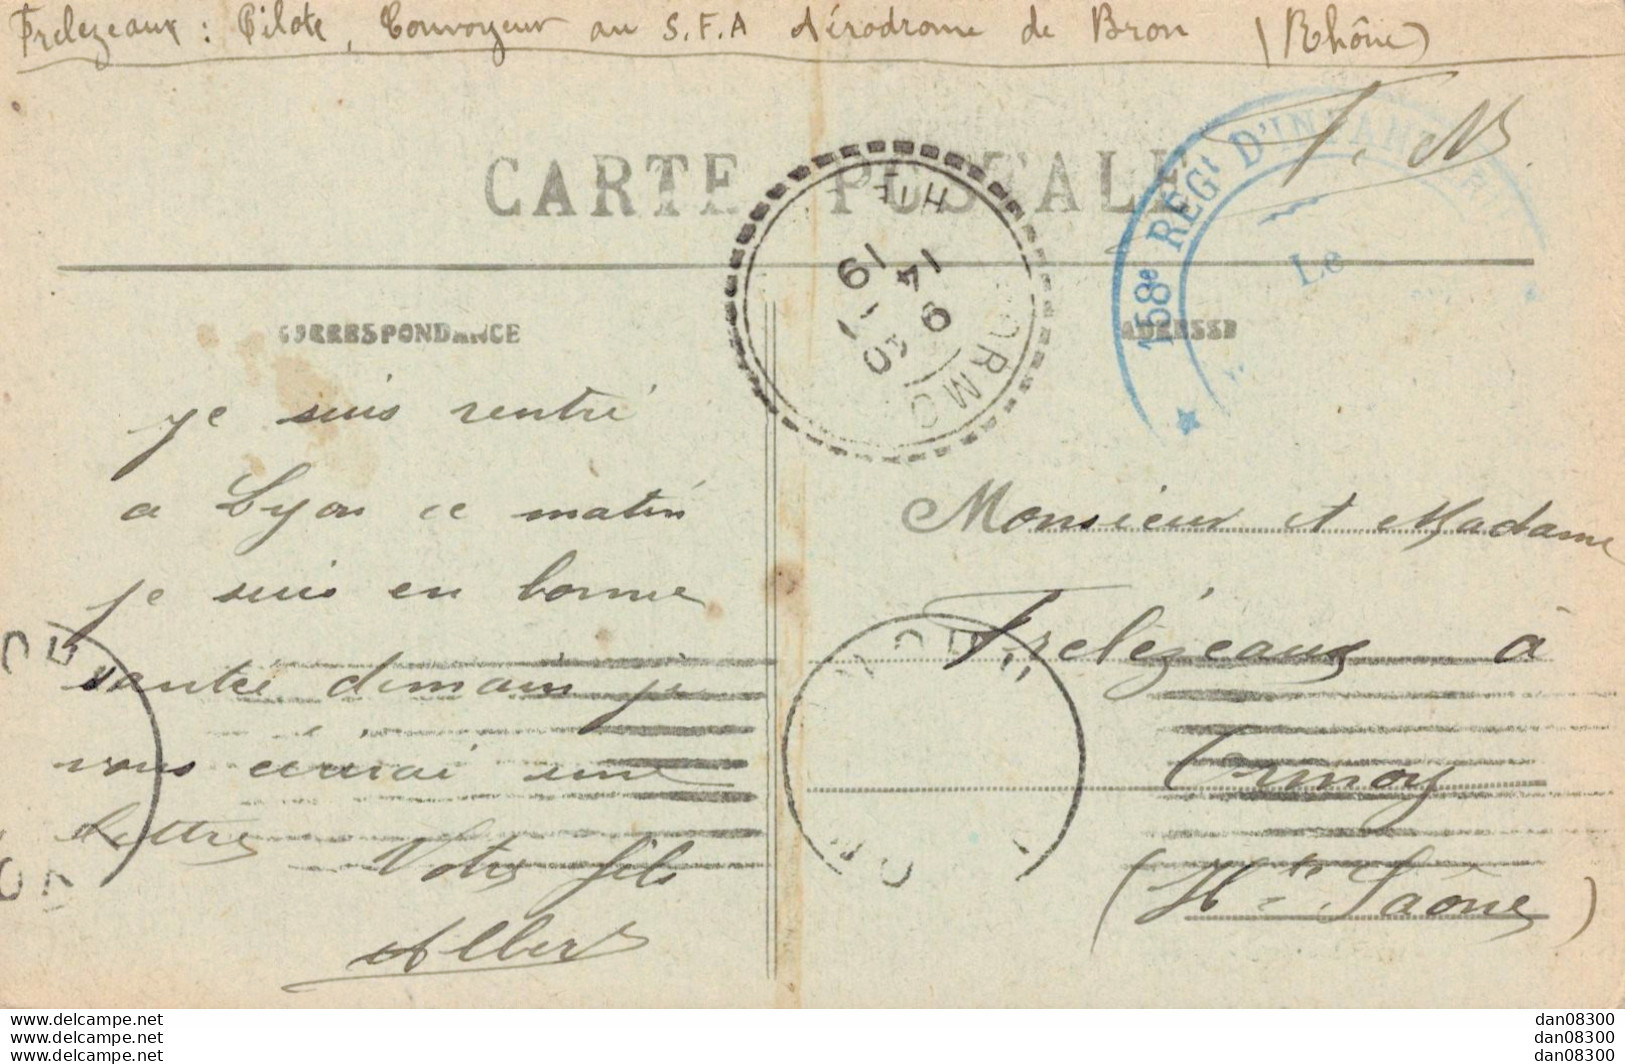 Frelezeaux : Pilote, Convoyeur au S.F.A Aérodrome de Bron (Rhône)
CARTE POSTALE
F. M.
158e REGt D'INFANTERIE
Le
ORMOY
Hte
14
9 - 1
19
CORRESPONDANCE
ADRESSE
je suis rentré
a Lyon ce matin
je suis en bonne
santée demain je
vous écrirai une
lettre Votre fils
Albert
Monsieur et Madame
Frelézeaux à
Ormoy
(Hte Saône)
www.delcampe.net
www.delcampe.net
www.delcampe.net
dan08300
dan08300
dan08300